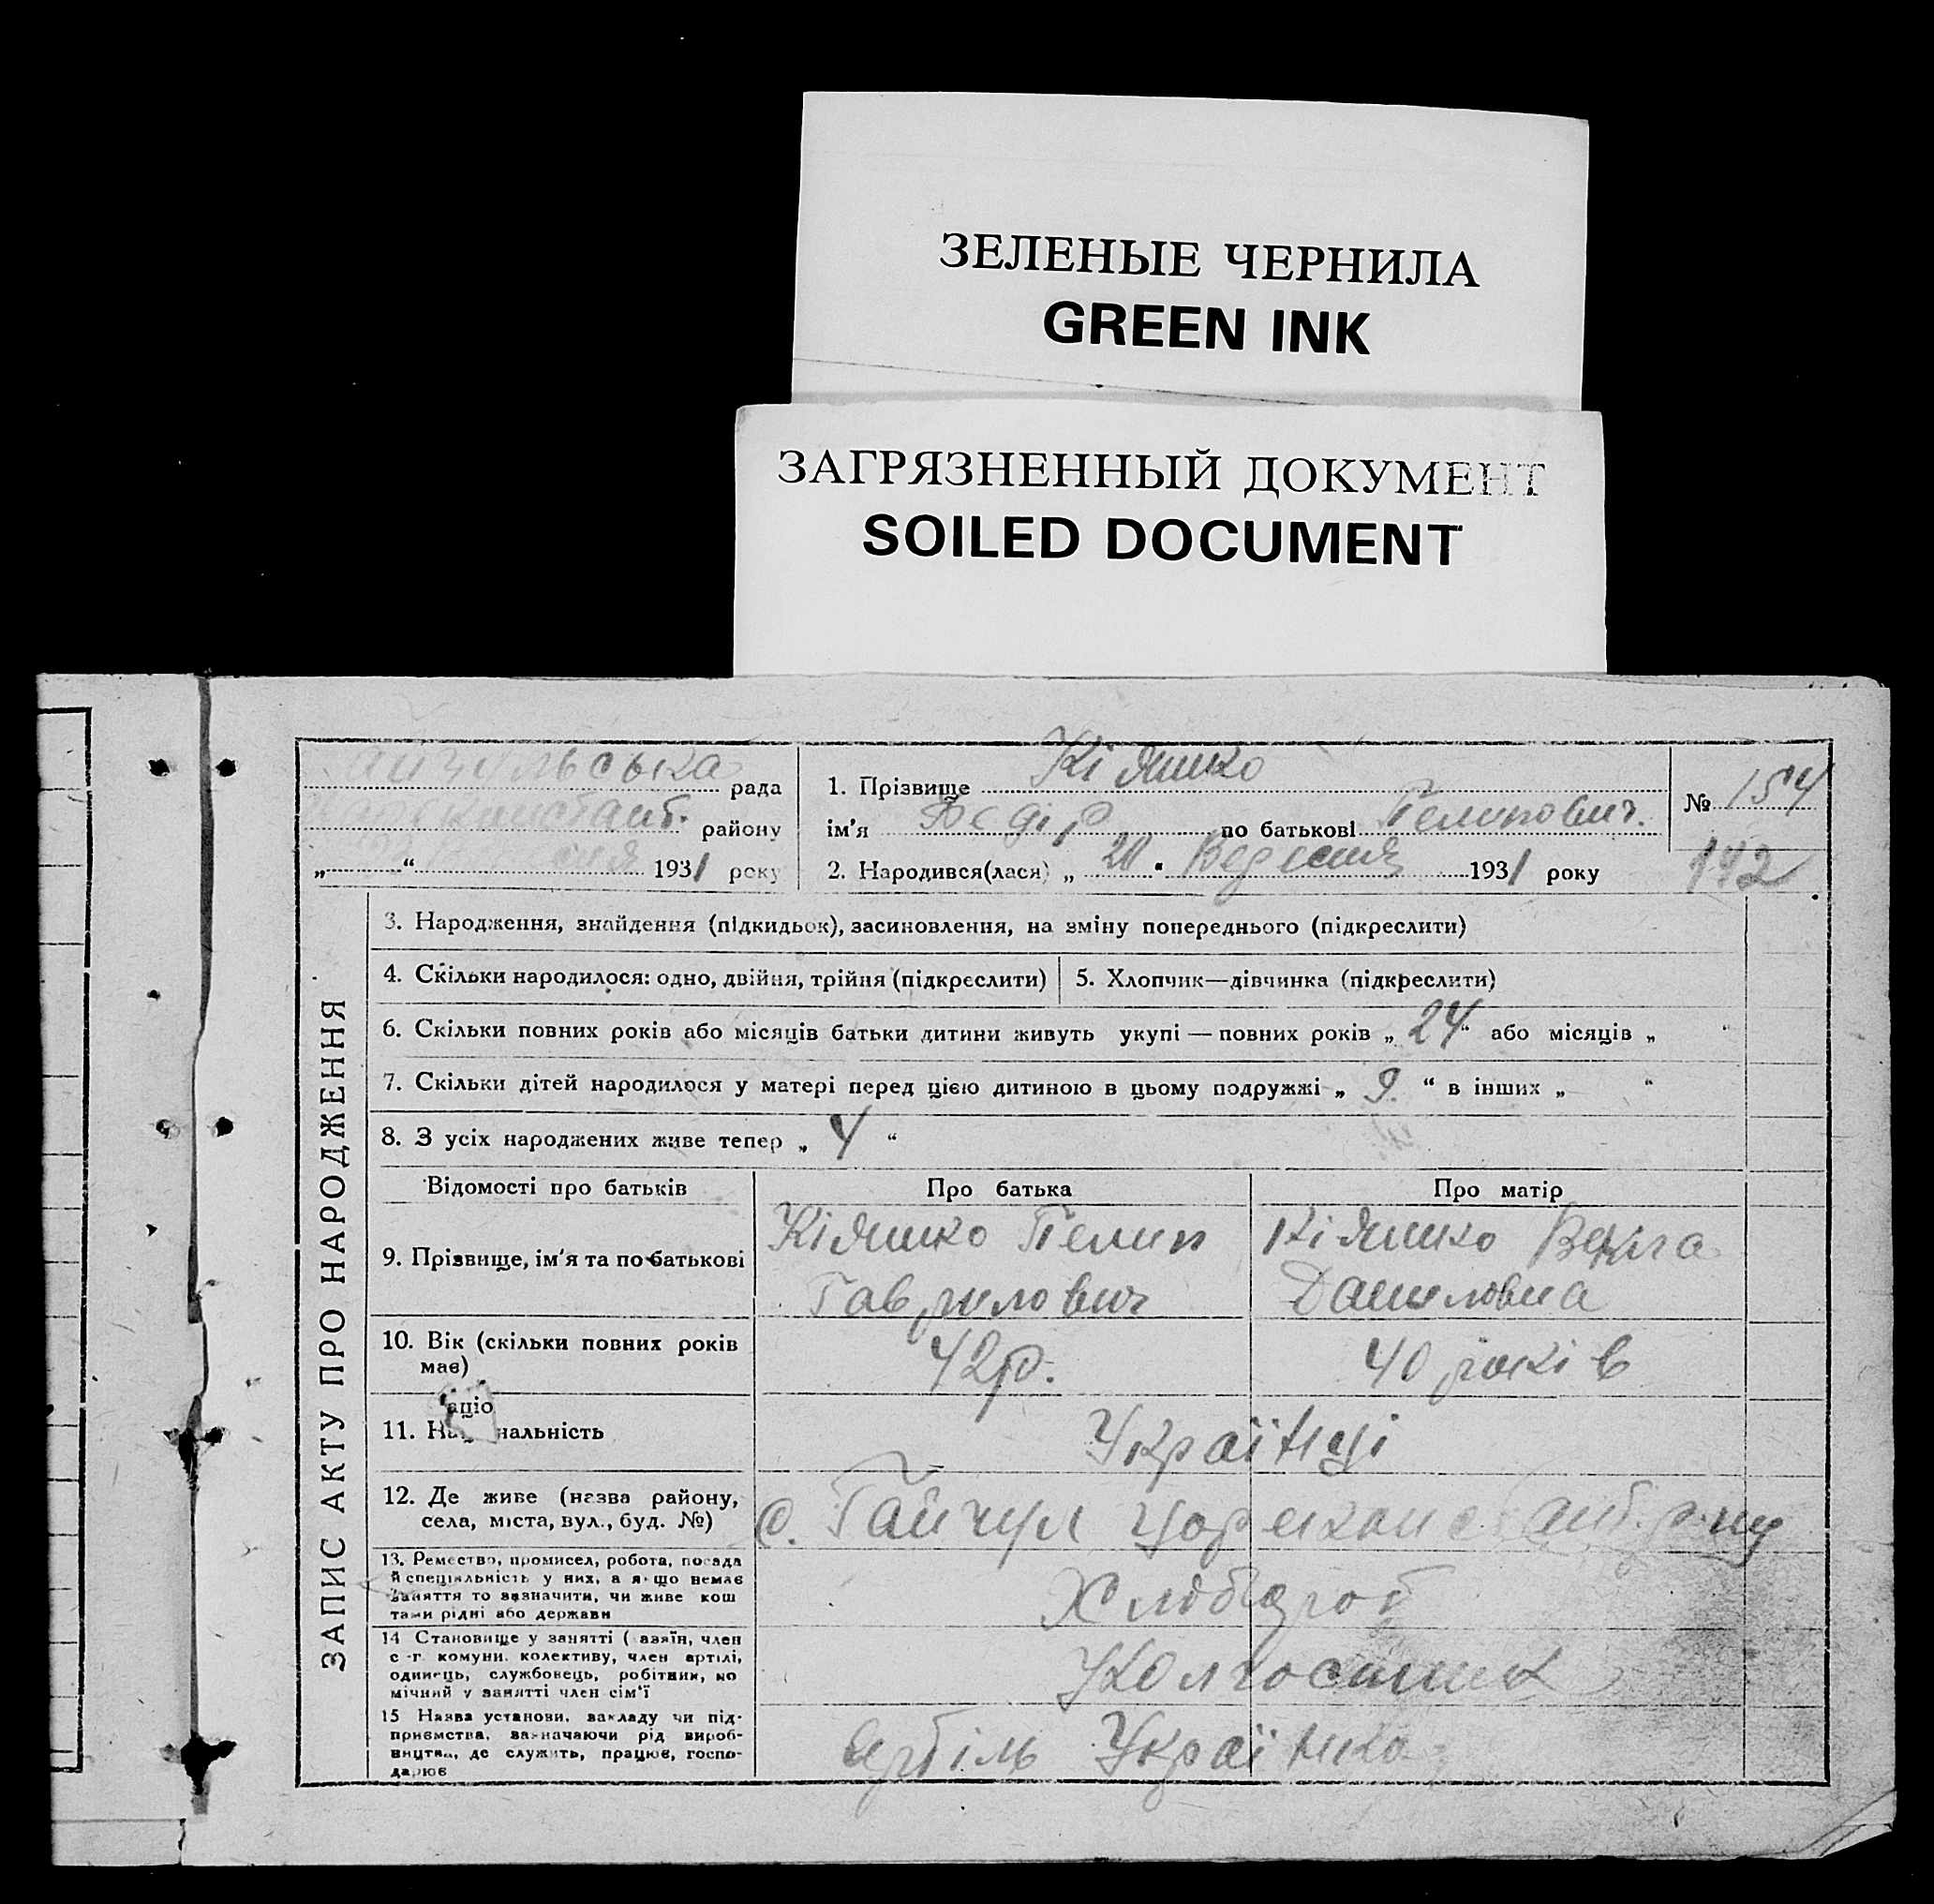 ЗЕЛЕНЫЕ ЧЕРНИЛА
GREEN INK
ЗАГРЯЗНЕННЫЙ ДОКУМЕНТ
SOILED DOCUMENT
рада
району
„ “ 1931 року
1. Прізвище Кіяшко
ім'я Федір по батькові
2. Народився(лася) „ 20 " Вересня 1931 року
№ 154
142
ЗАПИС АКТУ ПРО НАРОДЖЕННЯ
3. Народження, знайдення (підкидьок), засиновлення, на зміну попереднього (підкреслити)
4. Скільки народилося: одно, двійня, трійня (підкреслити)
5. Хлопчик—дівчинка (підкреслити)
6. Скільки повних років або місяців батьки дитини живуть укупі — повних років „ 24 “ або місяців „ “
7. Скільки дітей народилося у матері перед цією дитиною в цьому подружжі „ 9 “ в інших „ “
8. З усіх народжених живе тепер „ 4 “
Відомості про батьків
Про батька
Про матір
9. Прізвище, ім'я та по батькові
Кіяшко
Гаврилович
Кіяшко
Даниловна
10. Вік (скільки повних років
має)
42 р.
40 років
11. Національність
Українці
12. Де живе (назва району,
села, міста, вул., буд. №)
с. Гайчул
13. Ремество, промисел, робота, посада
й спеціяльність у них, а якщо немає
заняття то зазначити, чи живе кош
тами рідні або держави
Хлібороб
14 Становище у занятті (хазяїн, член
с-г. комуни, колективу, член артілі,
одинець, службовець, робітник, по
мічний у занятті член сім'ї
Колгоспник
15 Назва установи, закладу чи під-
приємства, зазначаючи рід вироб-
ництва, де служить, працює, госпо-
дарює
Українка